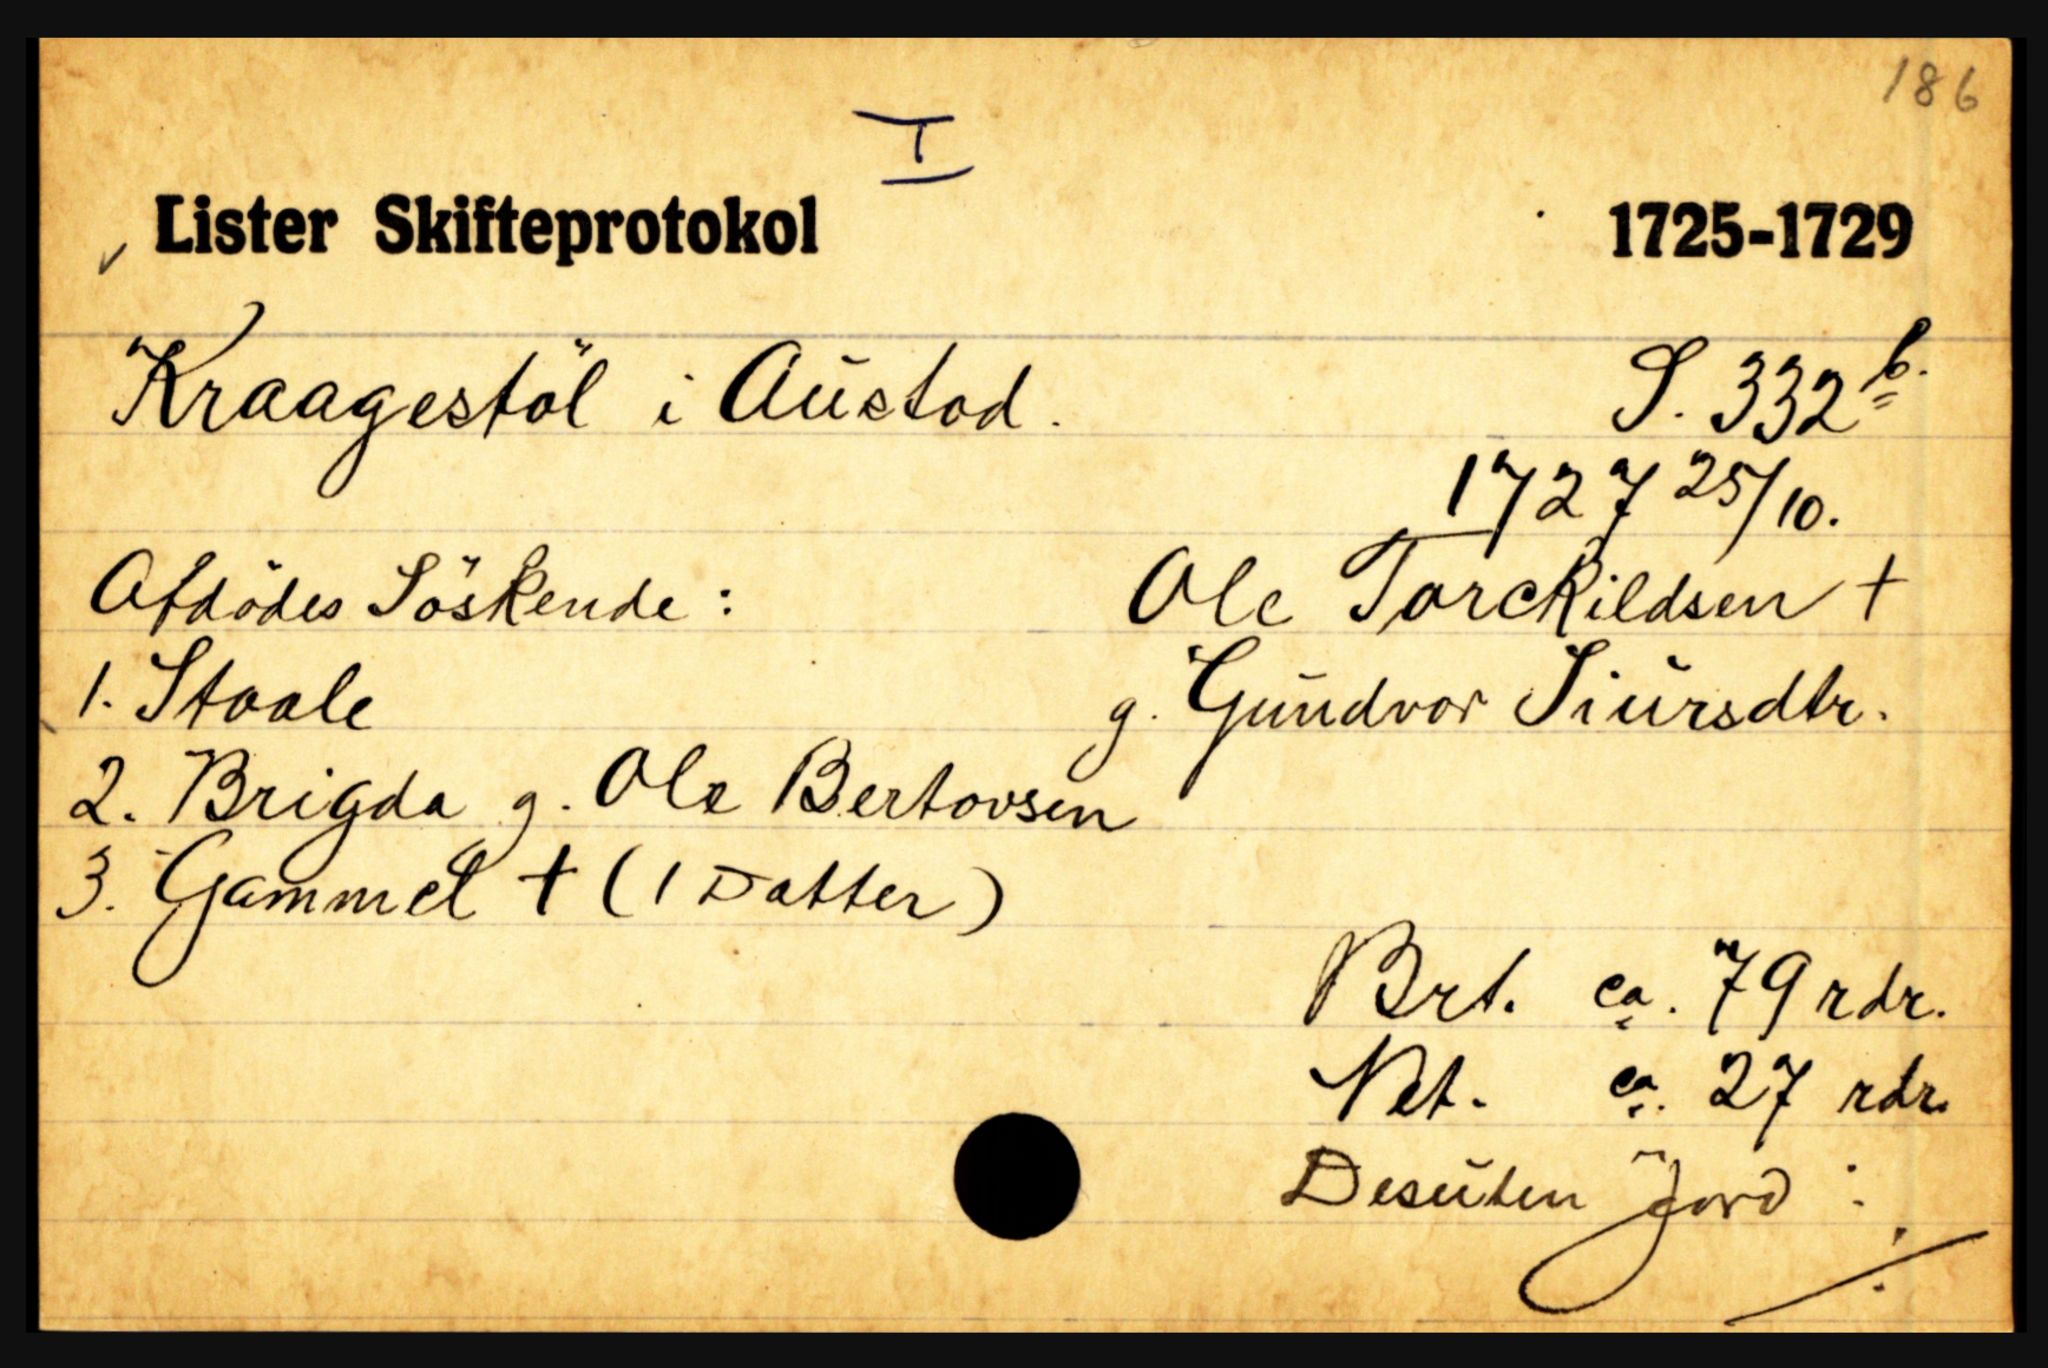 186
I
Lister Skifteprotokol 1725-1729
Kraagestöl i Austad. S. 332 b.
1727 25/10.
Afdödes Söskende: Ole Torckildsen +
1. Staale g. Gundvor Siursdtr.
2. Brigda g. Ole Bertovsen
3. Gammel + (1 Datter)
Brt. ca. 79 rdr.
Net. ca. 27 rdr.
Desuten Jord :